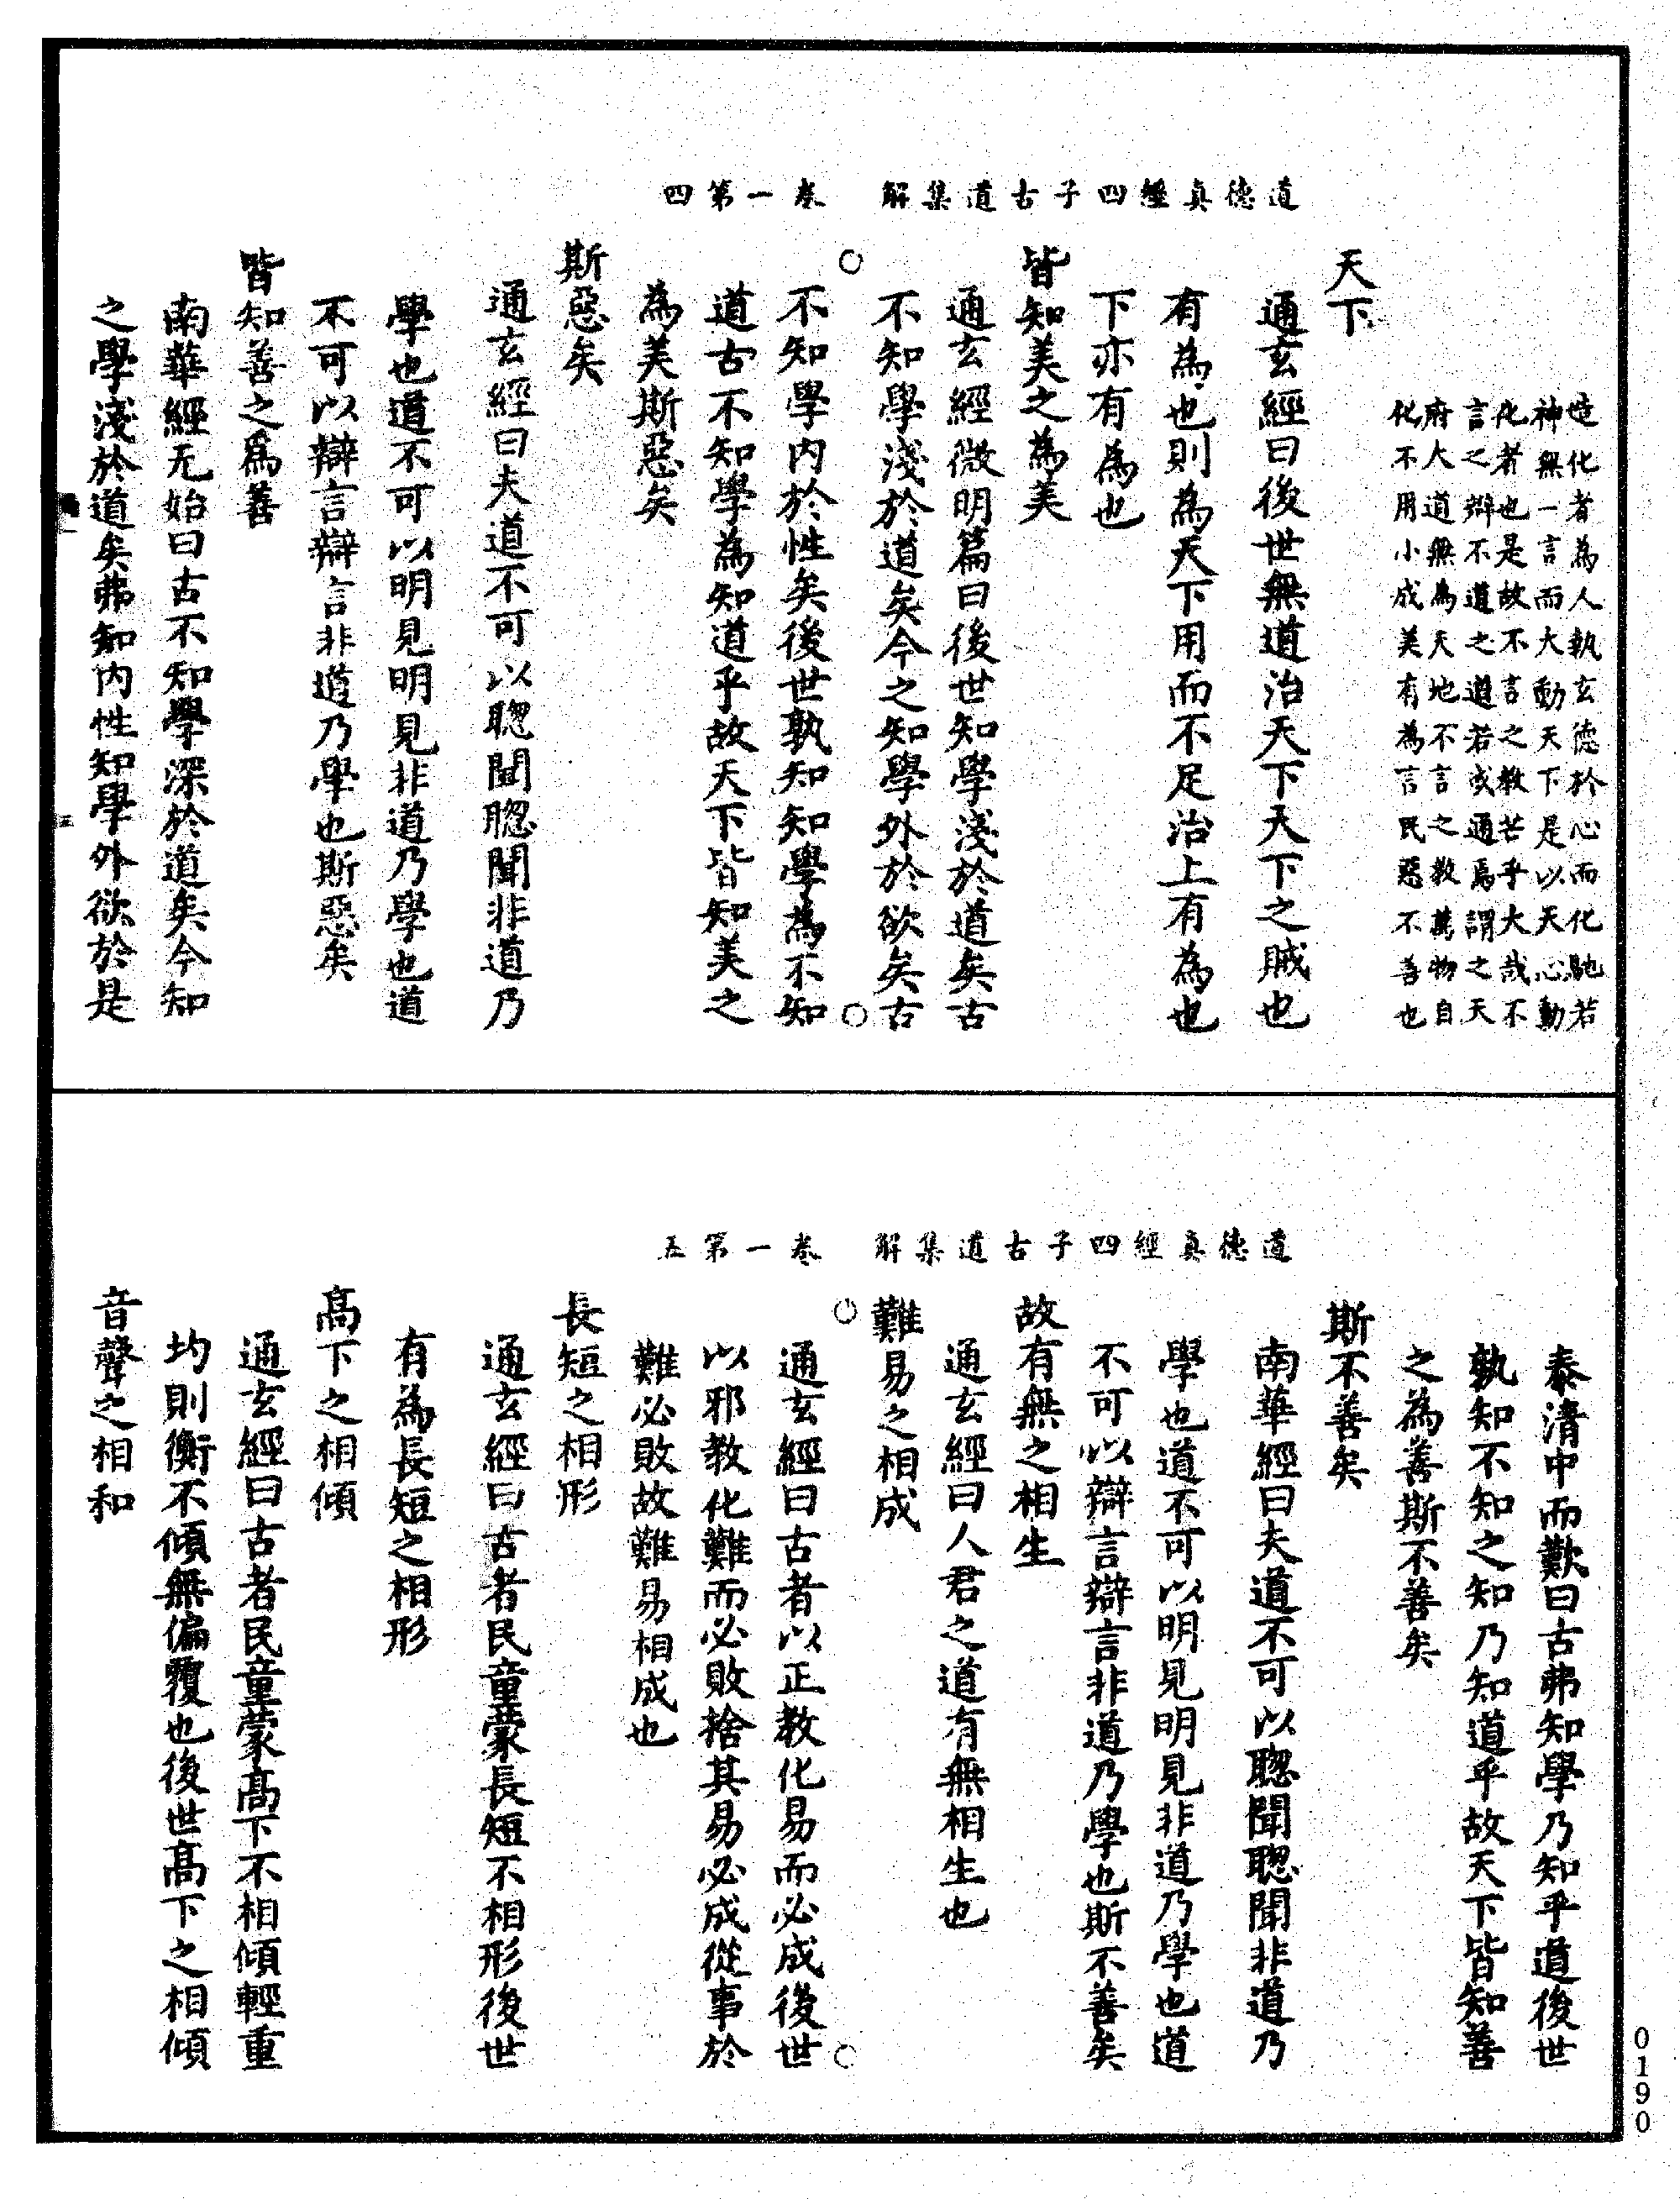 道德真經四子古道集解　卷一第四
造化者為人執玄德於心而化馳若
神無一言而大動天下是以天心動
化者也是故不言之教芒乎大哉不
言之辯不道之道若或通焉謂之天
府大道無為天地不言之教萬物自
化不用小成美有為言民惡不善也
天下
通玄經曰後世無道治天下天下之賊也
有為也則為天下用而不足治上有為也
下亦有為也
皆知美之為美
通玄經微明篇曰後世知學淺於道矣古
不知學淺於道矣今之知學外於欲矣古
不知學內於性矣後世孰知知學為不知
道古不知學為知道乎故天下皆知美之
為美斯惡矣
斯惡矣
通玄經曰夫道不可以聰聞聰聞非道乃
學也道不可以明見明見非道乃學也道
不可以辯言辯言非道乃學也斯惡矣
皆知善之為善
南華經无始曰古不知學深於道矣今知
之學淺於道矣弗知內性知學外欲於是
道德真經四子古道集解　卷一第五
泰清中而歎曰古弗知學乃知乎道後世
孰知不知之知乃知道乎故天下皆知善
之為善斯不善矣
斯不善矣
南華經曰夫道不可以聰聞聰聞非道乃
學也道不可以明見明見非道乃學也道
不可以辯言辯言非道乃學也斯不善矣
故有無之相生
通玄經曰人君之道有無相生也
難易之相成
通玄經曰古者以正教化易而必成後世
以邪教化難而必敗捨其易必成從事於
難必敗故難易相成也
長短之相形
通玄經曰古者民童蒙長短不相形後世
有為長短之相形
高下之相傾
通玄經曰古者民童蒙高下不相傾輕重
均則衡不傾無偏覆也後世高下之相傾
音聲之相和
0190